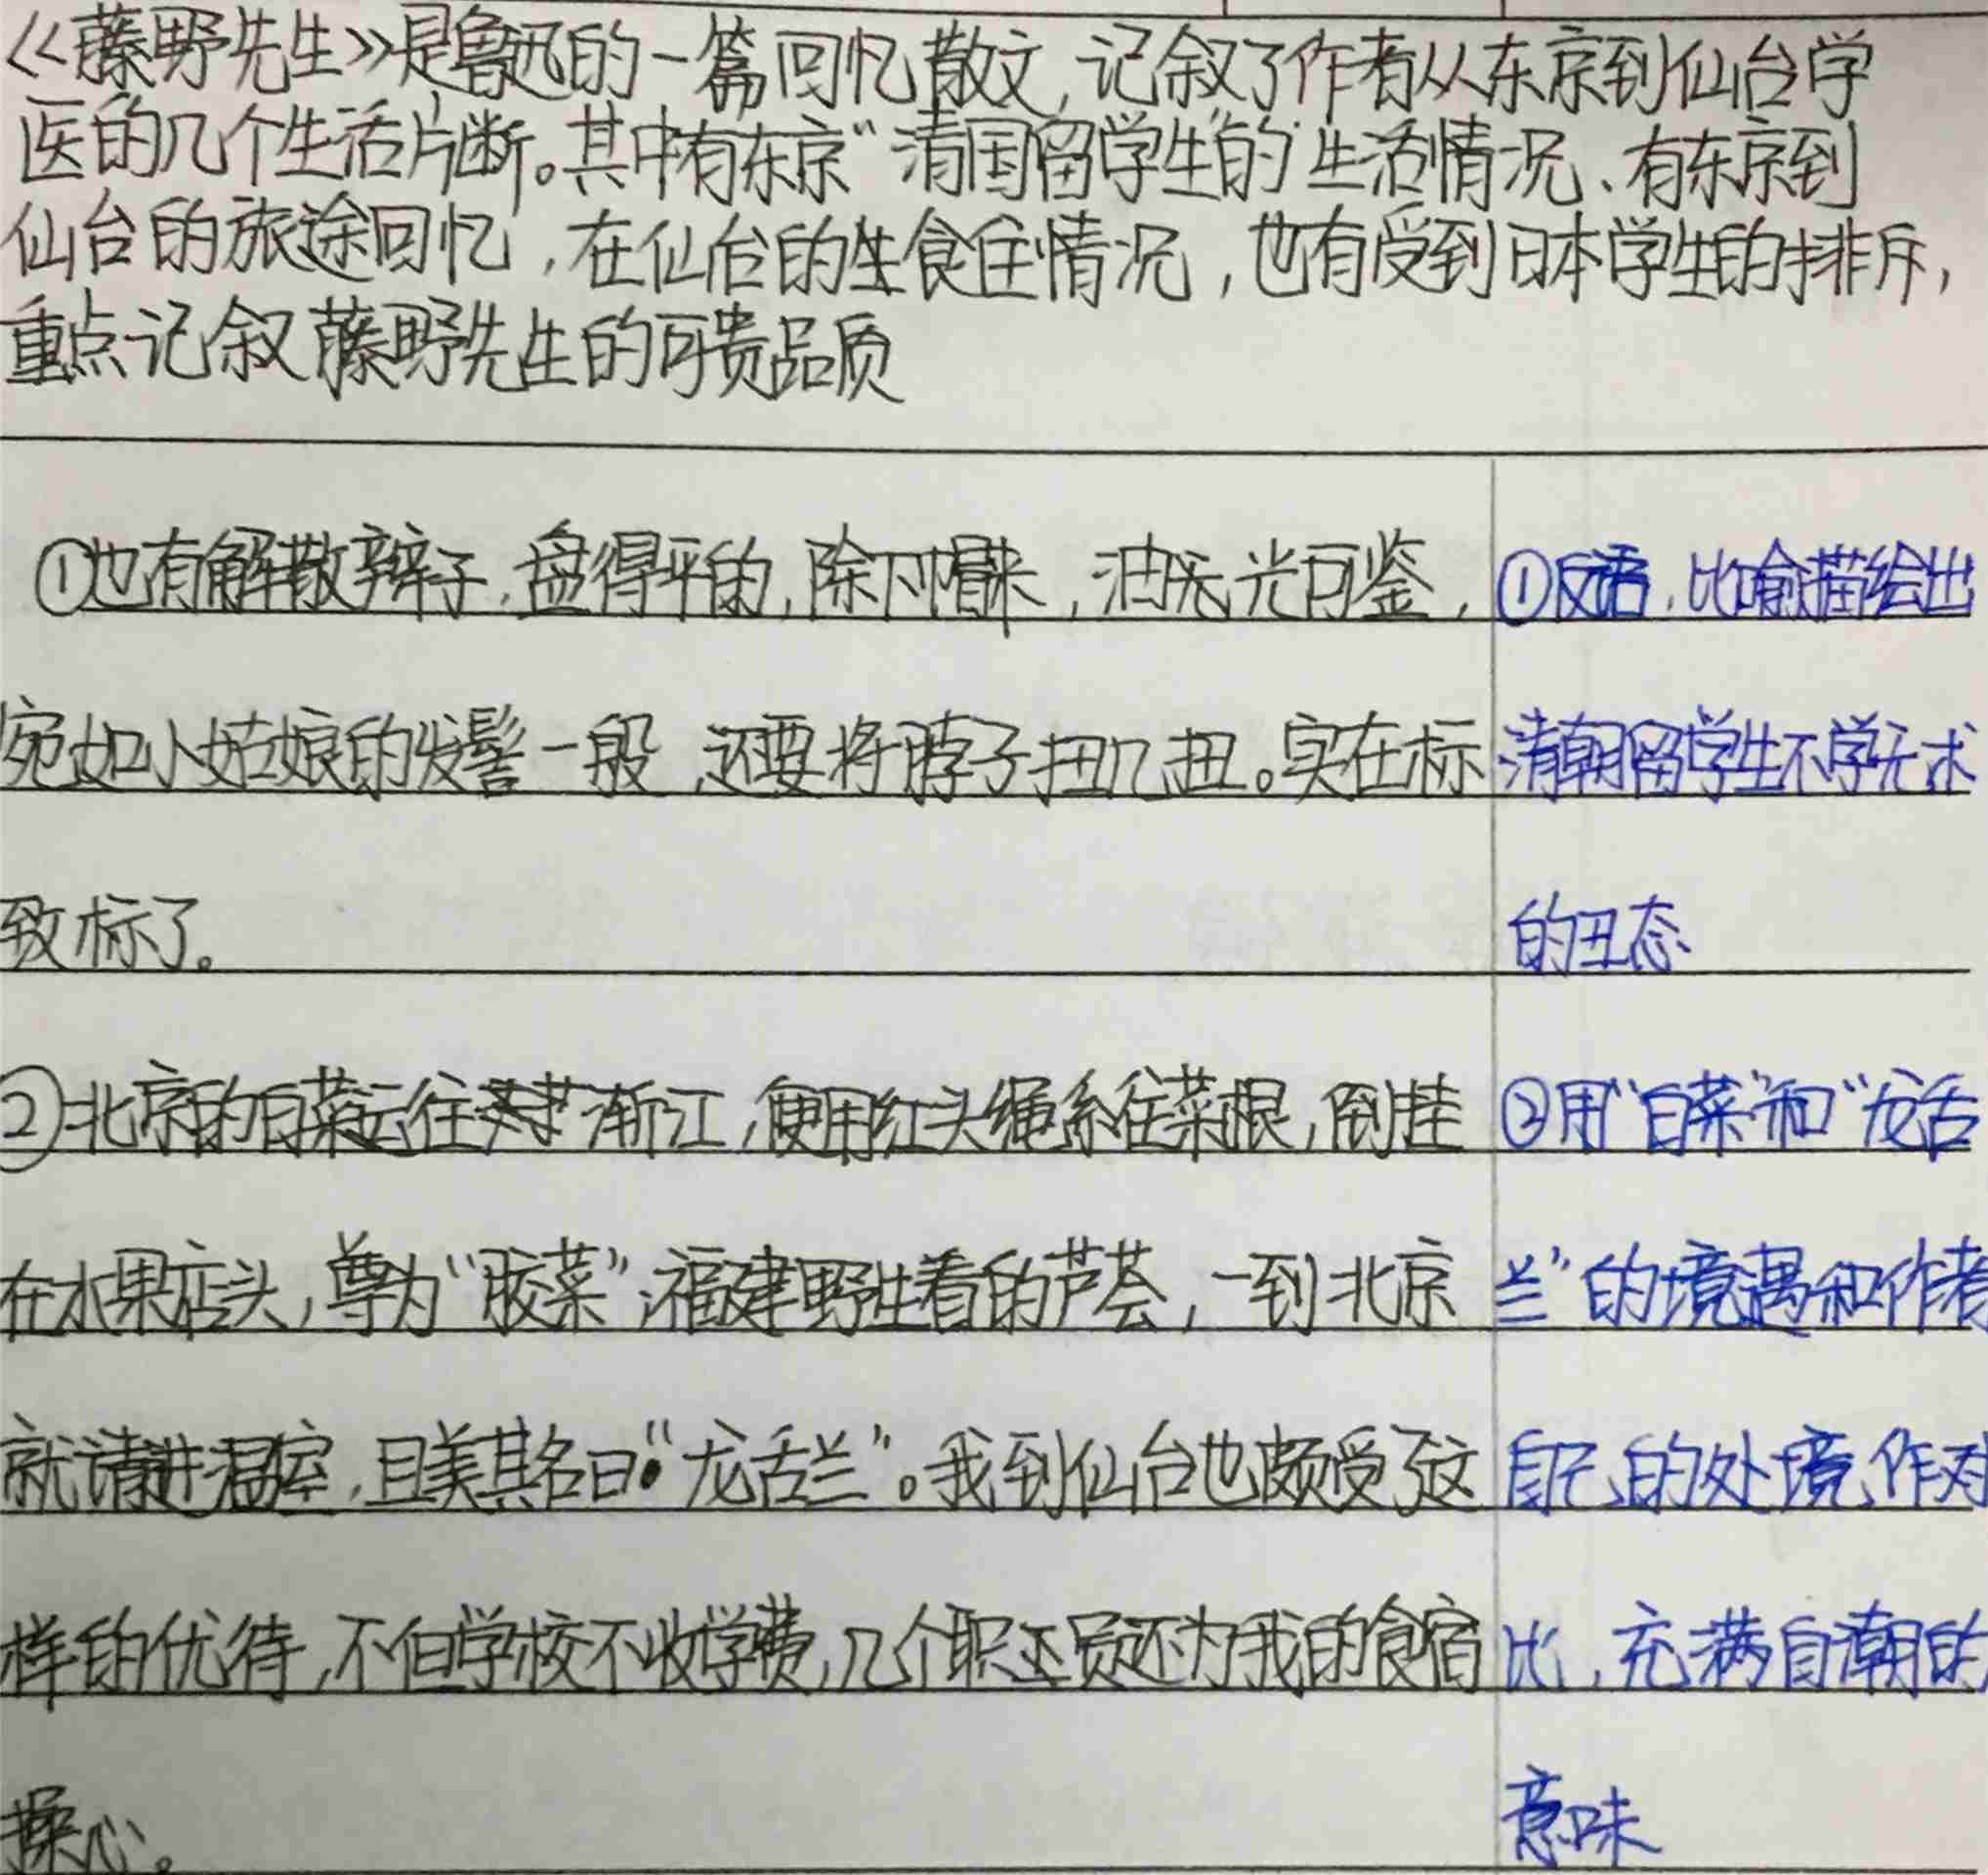 《藤野先生》是鲁迅的一篇回忆散文，记叙了作者从东京到仙台学
医的几个生活片断。其中有东京“清国留学生”的生活情况、有东京到
仙台的旅途回忆，在仙台的生食住情况，也有受到日本学生的排斥，
重点记叙藤野先生的可贵品质
①也有解散辫子，盘得平的，除下帽来，油光可鉴，
宛如小姑娘的发髻一般，还要将脖子扭几扭。实在标
致标了。
②北京的白菜运往浙江，便用红头绳系住菜根，倒挂
在水果店头，尊为“胶菜”；福建野生着的芦荟，一到北京
就请进温室，且美其名曰“龙舌兰”。我到仙台也颇受了这
样的优待，不但学校不收学费，几个职工员还为我的食宿
操心。
①反语，比喻描绘出
清朝留学生不学无术
的丑态
②用“白菜”和“龙舌
兰”的境遇和作者
自己的处境作对
比，充满自潮的
意味